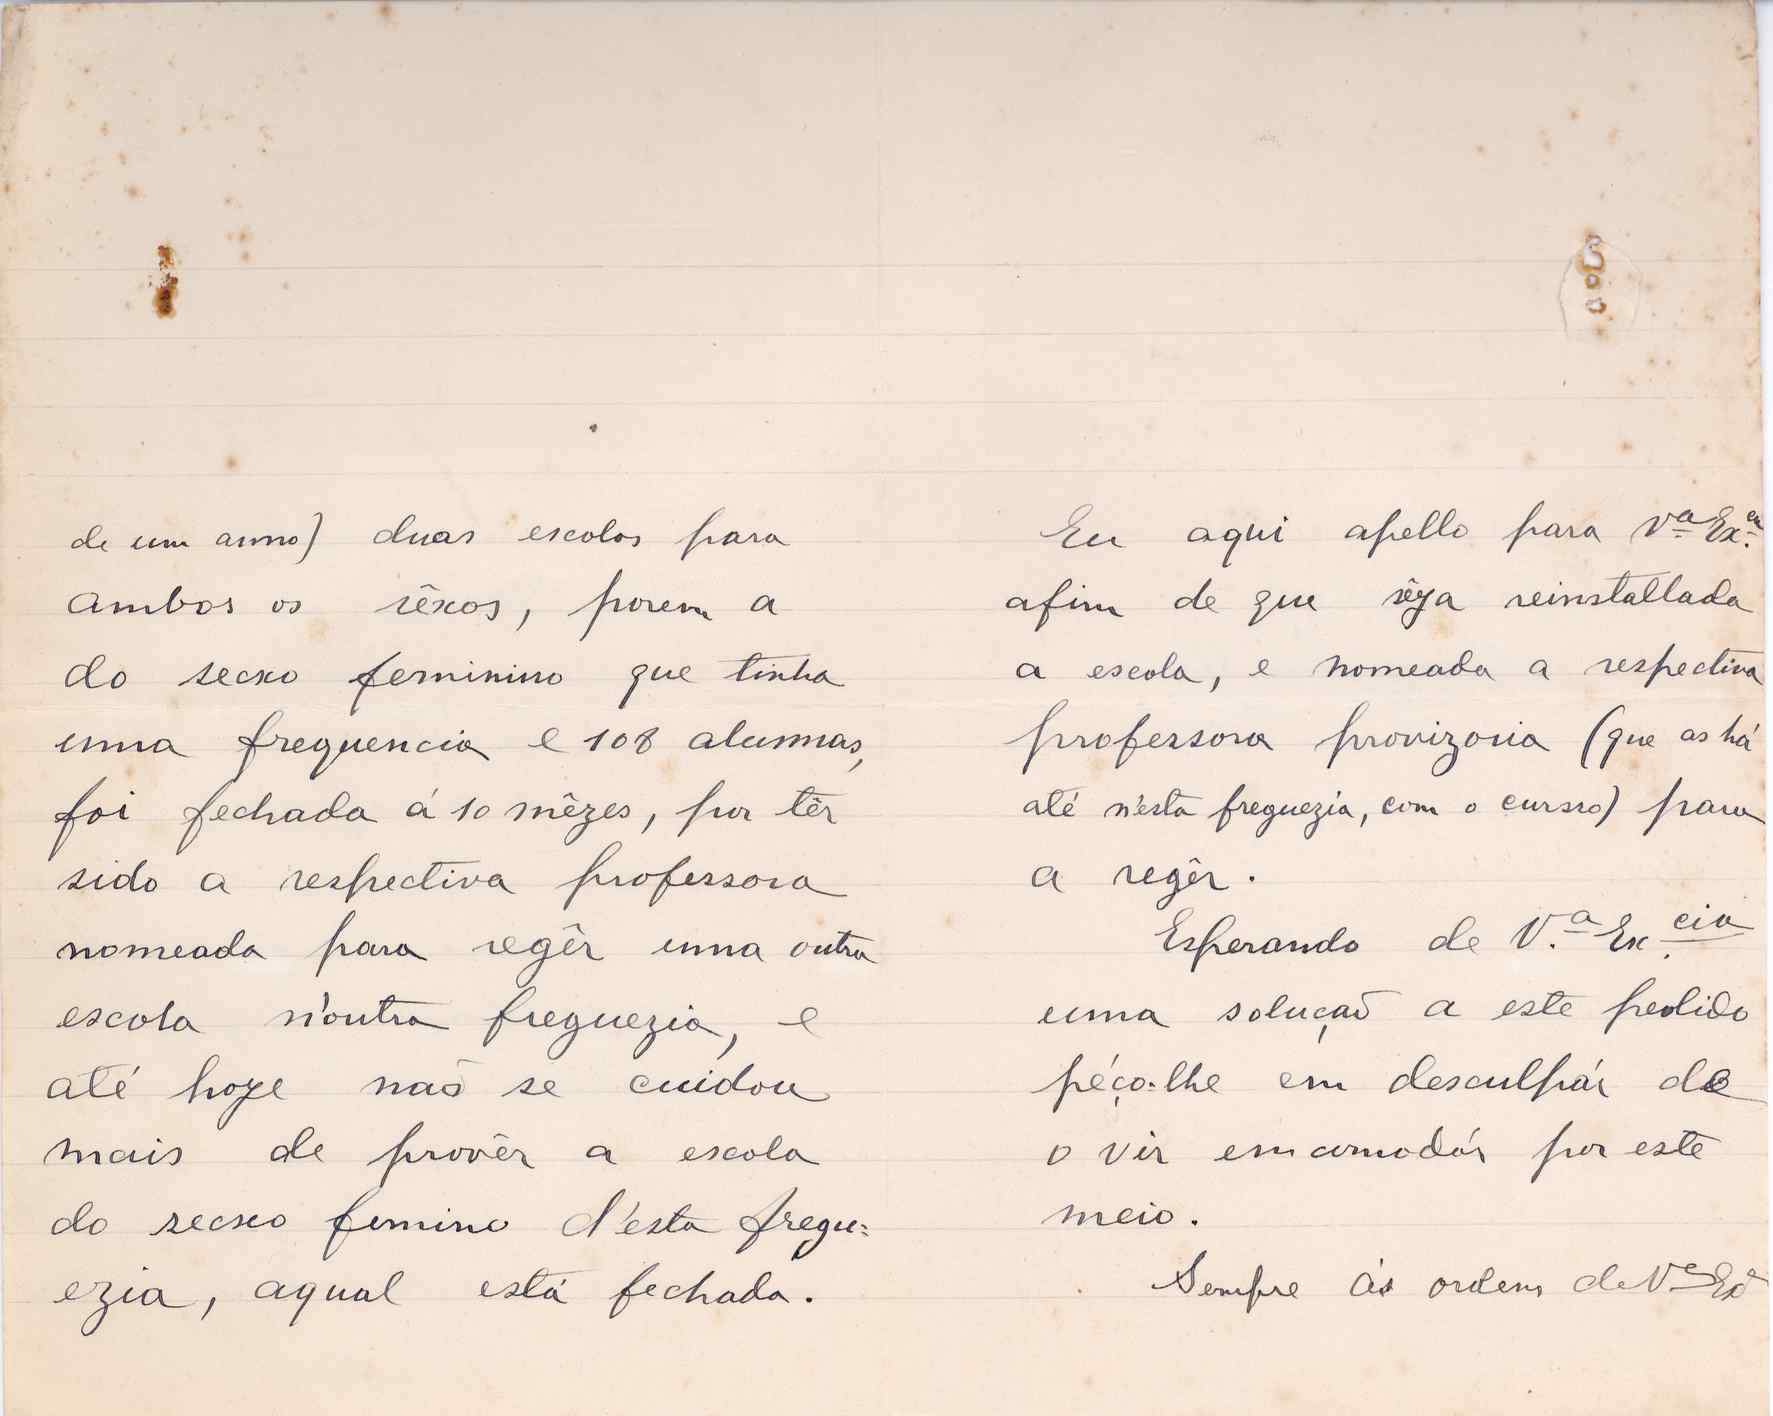 de um anno) duas escolas para
ambos os sêxos, porem a
do secxo feminino que tinha
uma frequencia e 108 alumnas,
foi fechada á 10 mêzes, por têr
sido a respectiva professora
nomeada para regêr uma outra
escola n'outra freguezia, e
até hoje naõ se cuidou
mais de provêr a escola
do secxo femino d'esta fregu=
ezia, aqual está fechada.
Eu aqui apello para Vª Ex.cia
afim de que sêja reinstallada
a escola, e nomeada a respectiva
professora provizoria (que as há
até n'esta freguezia, com o cursso) para
a regêr.
Esperando de V.ª Ex.cia
uma soluçaõ a este pedido
péço-lhe em desculpár de
o vir emcomodár por este
meio.
Sempre ás ordens de Vª Exª